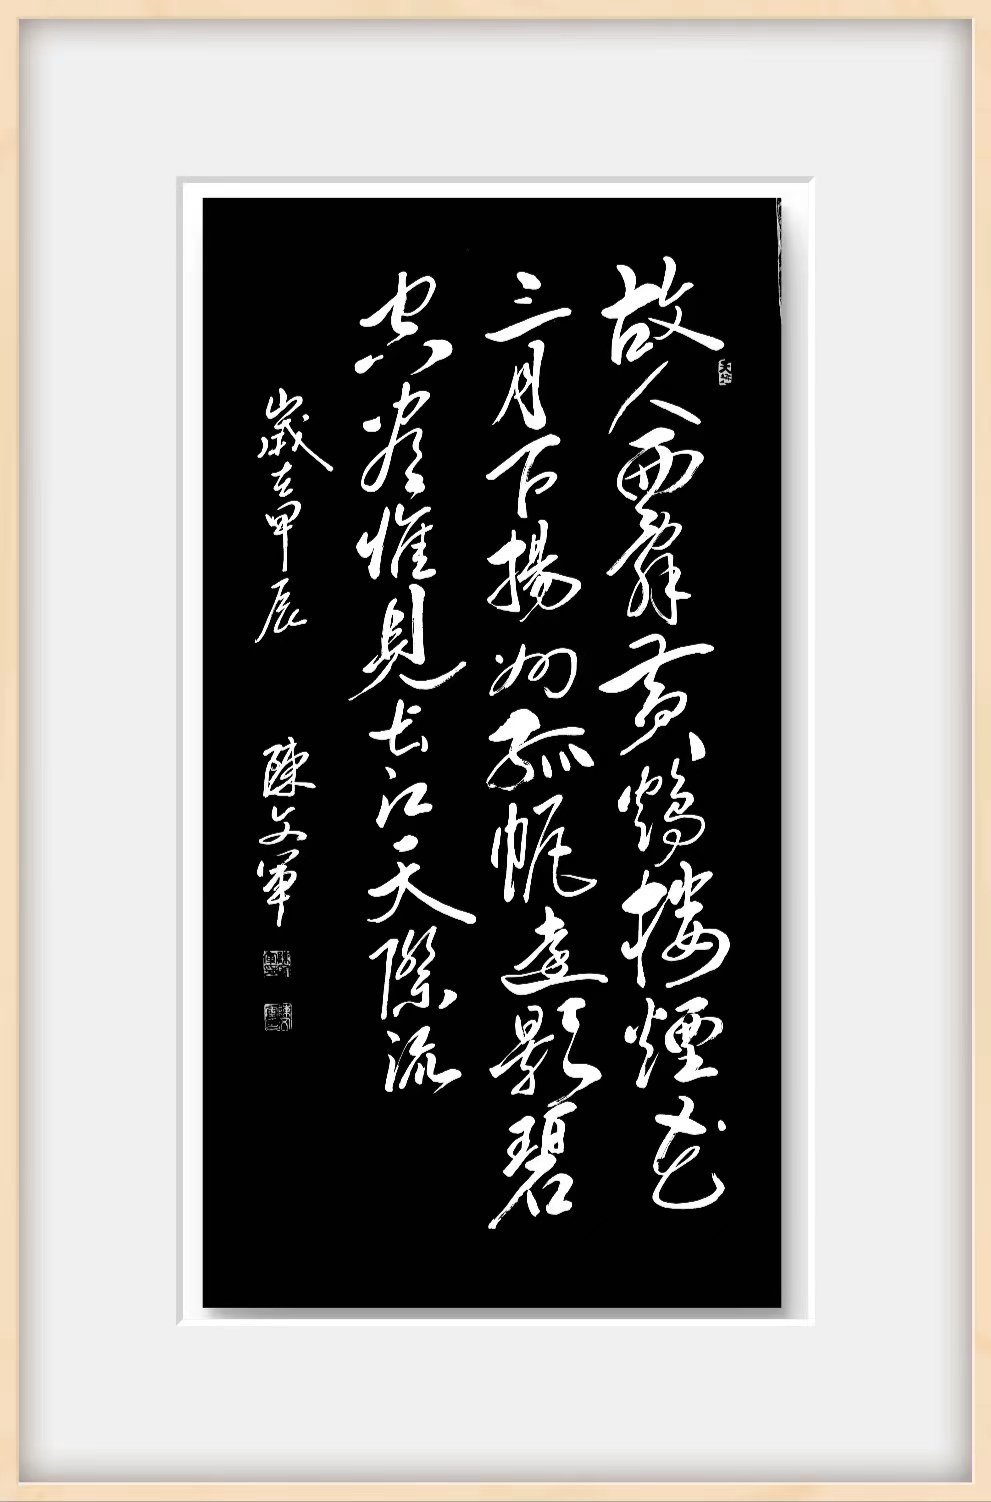 故人西辭黃鶴樓煙花
三月下揚州孤帆遠影碧
空盡惟見長江天際流
歲在甲辰 陳文軍